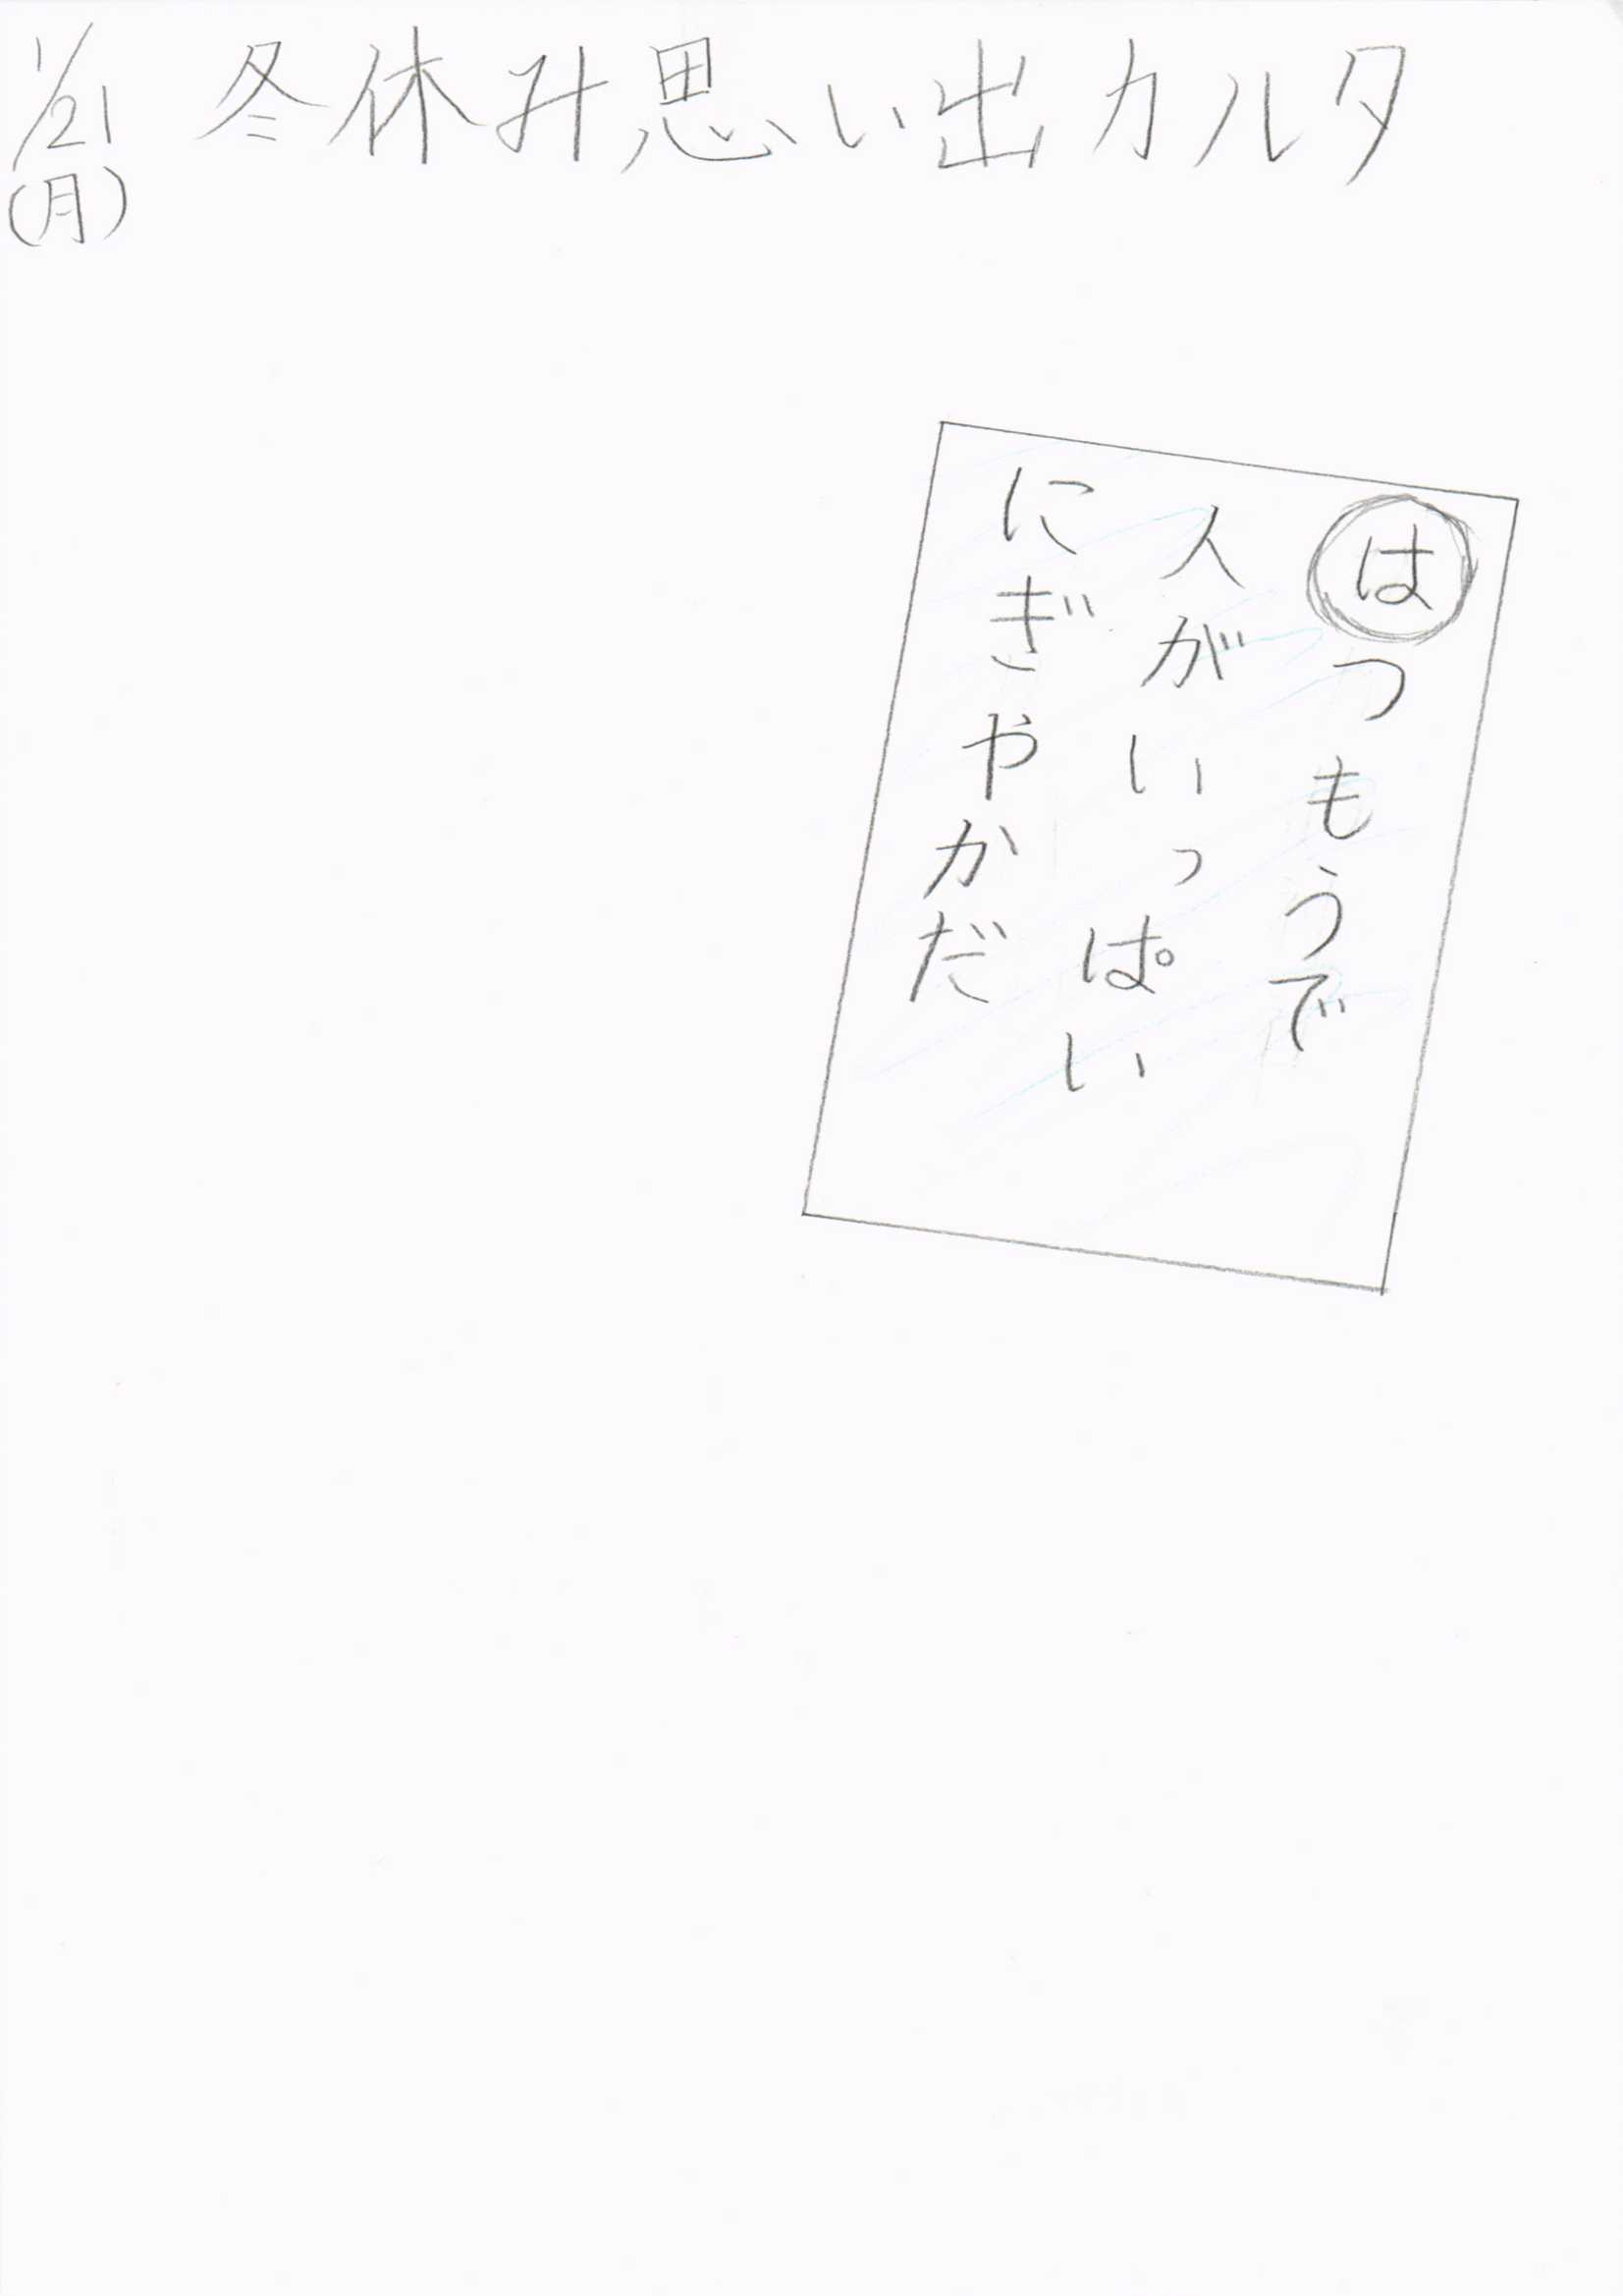 1/21
(月)
冬休み思い出カルタ
はつもうで
人がいっぱい
にぎやかだ